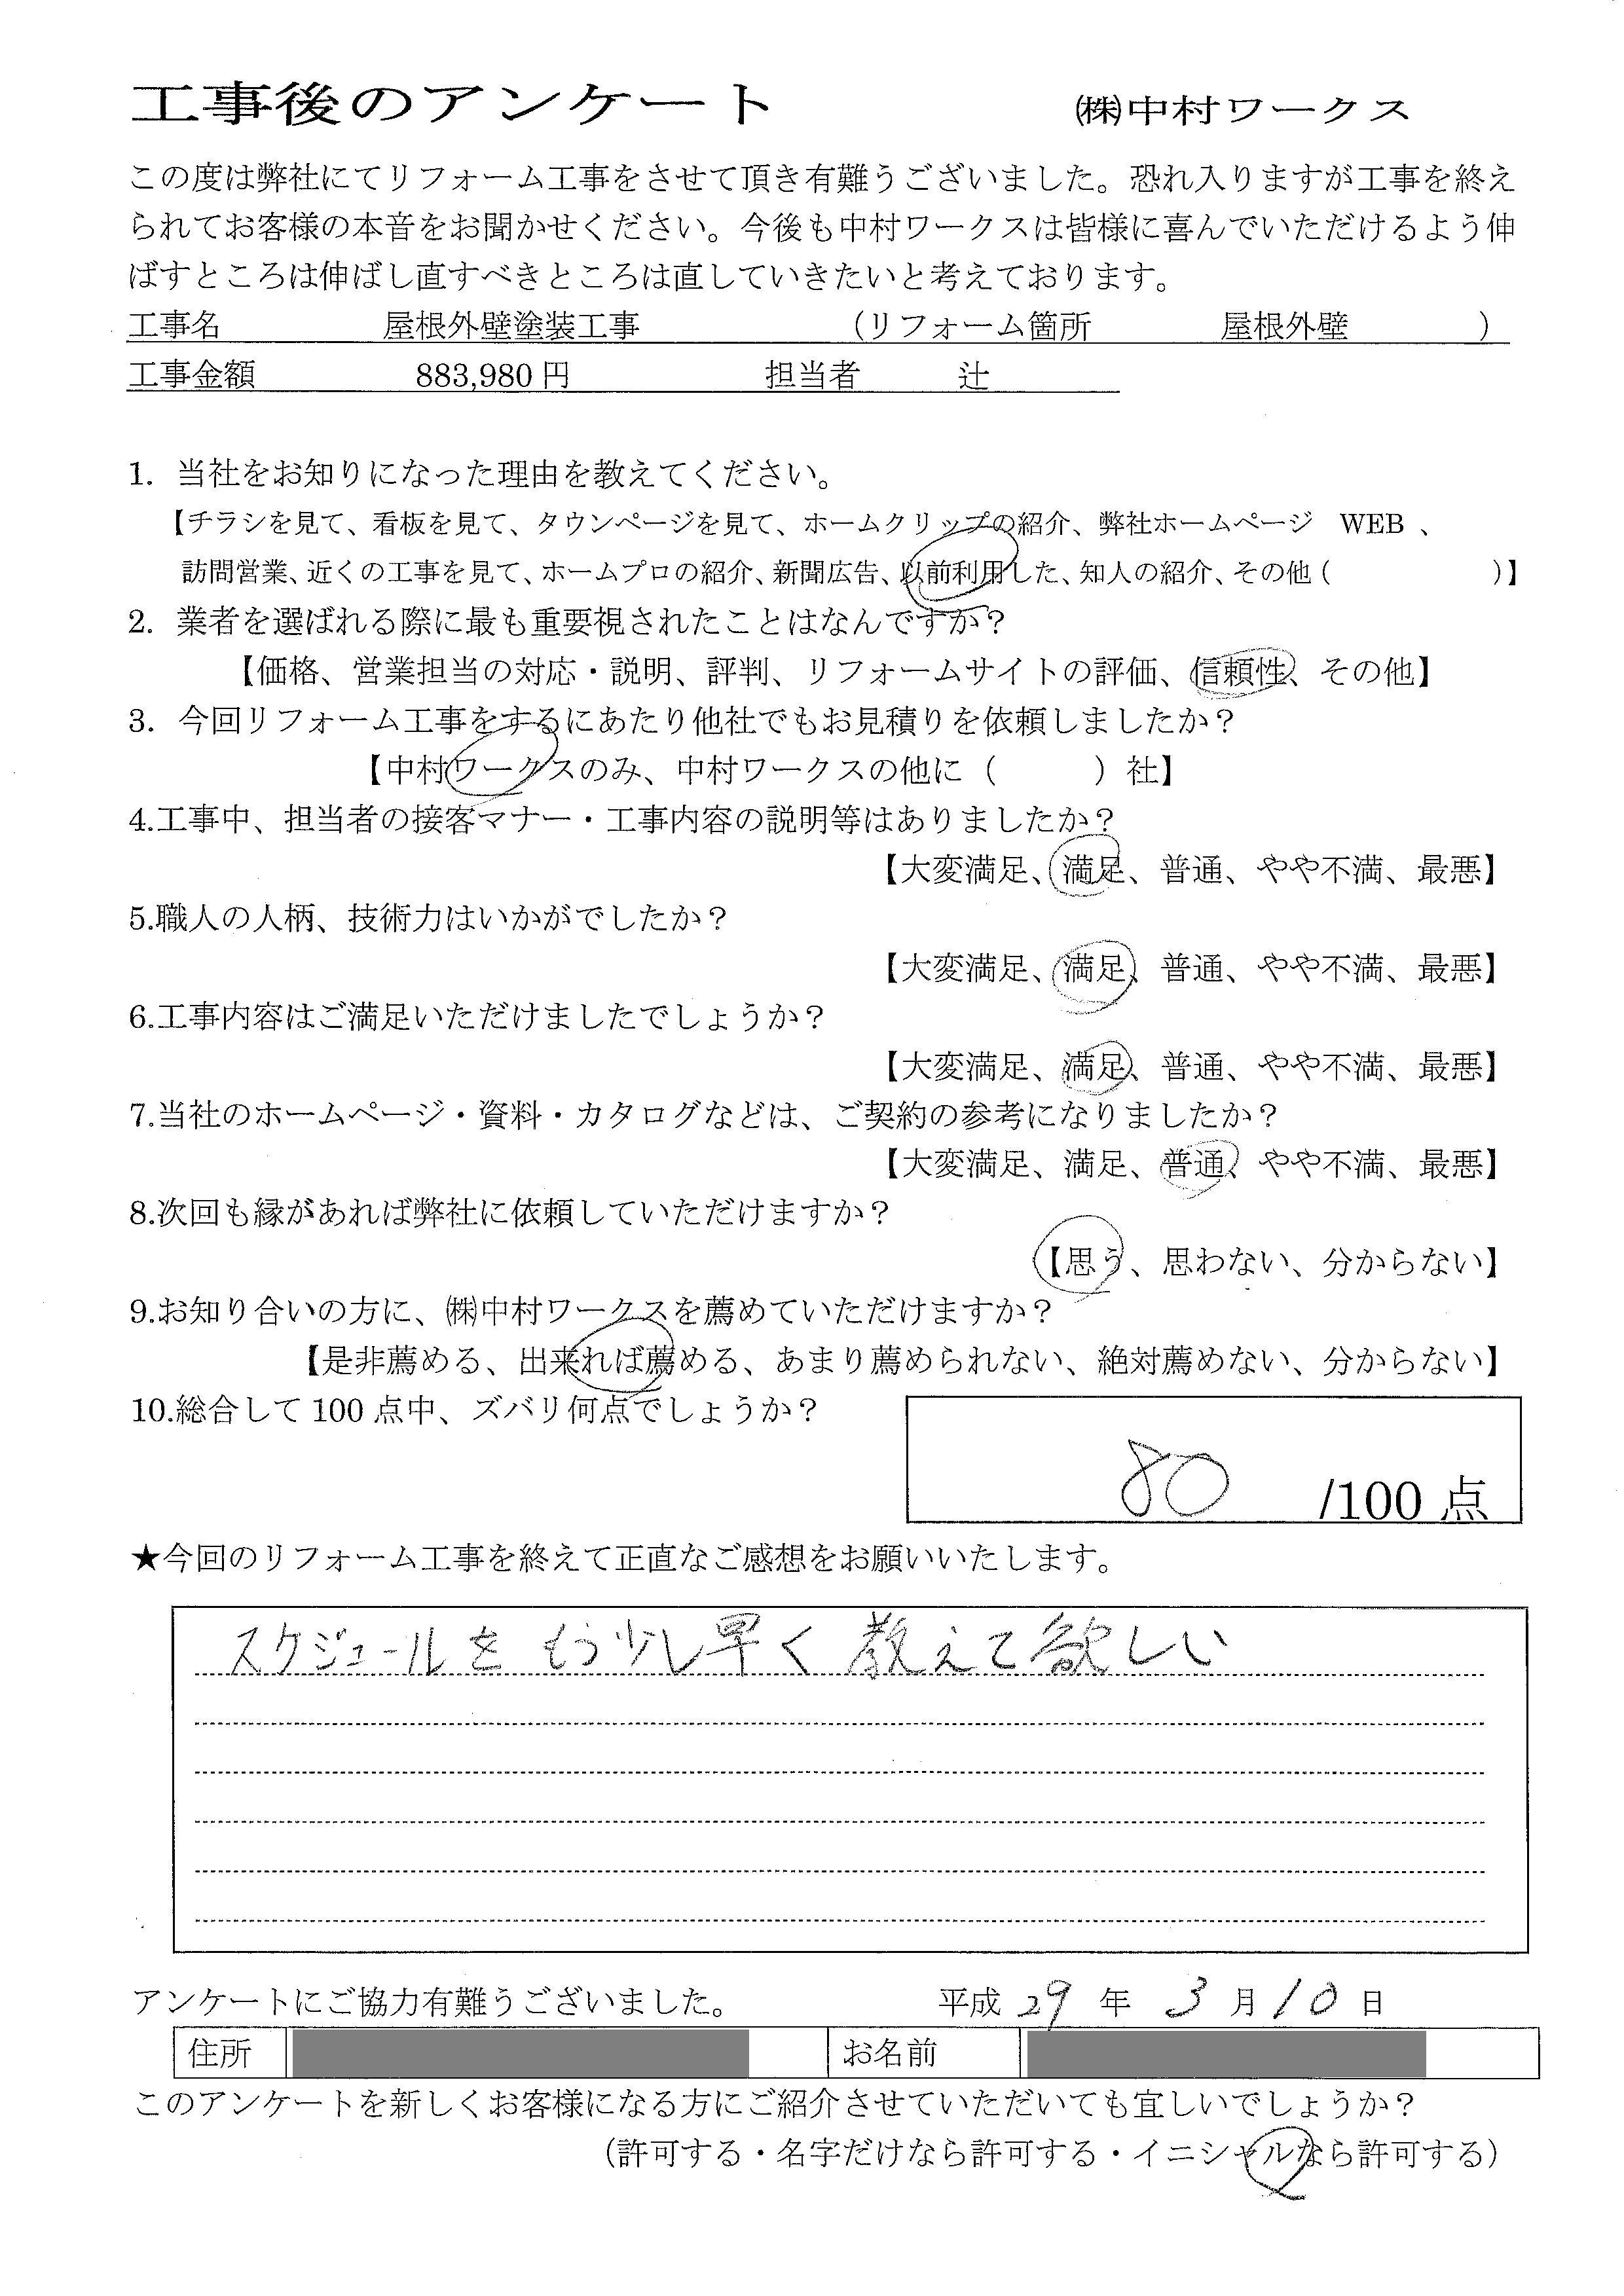 工事後のアンケート ㈱中村ワークス
この度は弊社にてリフォーム工事をさせて頂き有難うございました。恐れ入りますが工事を終え
られてお客様の本音をお聞かせください。今後も中村ワークスは皆様に喜んでいただけるよう伸
ばすところは伸ばし直すべきところは直していきたいと考えております。
工事名 屋根外壁塗装工事 （リフォーム箇所 屋根外壁 ）
工事金額 883,980 円 担当者 辻
1. 当社をお知りになった理由を教えてください。
【チラシを見て、看板を見て、タウンページを見て、ホームクリップの紹介、弊社ホームページ WEB 、
訪問営業、近くの工事を見て、ホームプロの紹介、新聞広告、以前利用した、知人の紹介、その他（ ）】
2. 業者を選ばれる際に最も重要視されたことはなんですか？
【価格、営業担当の対応・説明、評判、リフォームサイトの評価、信頼性、その他】
3. 今回リフォーム工事をするにあたり他社でもお見積りを依頼しましたか？
【中村ワークスのみ、中村ワークスの他に（ ）社】
4.工事中、担当者の接客マナー・工事内容の説明等はありましたか？
【大変満足、満足、普通、やや不満、最悪】
5.職人の人柄、技術力はいかがでしたか？
【大変満足、満足、普通、やや不満、最悪】
6.工事内容はご満足いただけましたでしょうか？
【大変満足、満足、普通、やや不満、最悪】
7.当社のホームページ・資料・カタログなどは、ご契約の参考になりましたか？
【大変満足、満足、普通、やや不満、最悪】
8.次回も縁があれば弊社に依頼していただけますか？
【思う、思わない、分からない】
9.お知り合いの方に、㈱中村ワークスを薦めていただけますか？
【是非薦める、出来れば薦める、あまり薦められない、絶対薦めない、分からない】
10.総合して 100 点中、ズバリ何点でしょうか？
80 /100 点
★今回のリフォーム工事を終えて正直なご感想をお願いいたします。
スケジュールを もう少し早く 教えて欲しい
アンケートにご協力有難うございました。 平成 29 年 3 月 10 日
住所 お名前
このアンケートを新しくお客様になる方にご紹介させていただいても宜しいでしょうか？
（許可する・名字だけなら許可する・イニシャルなら許可する）